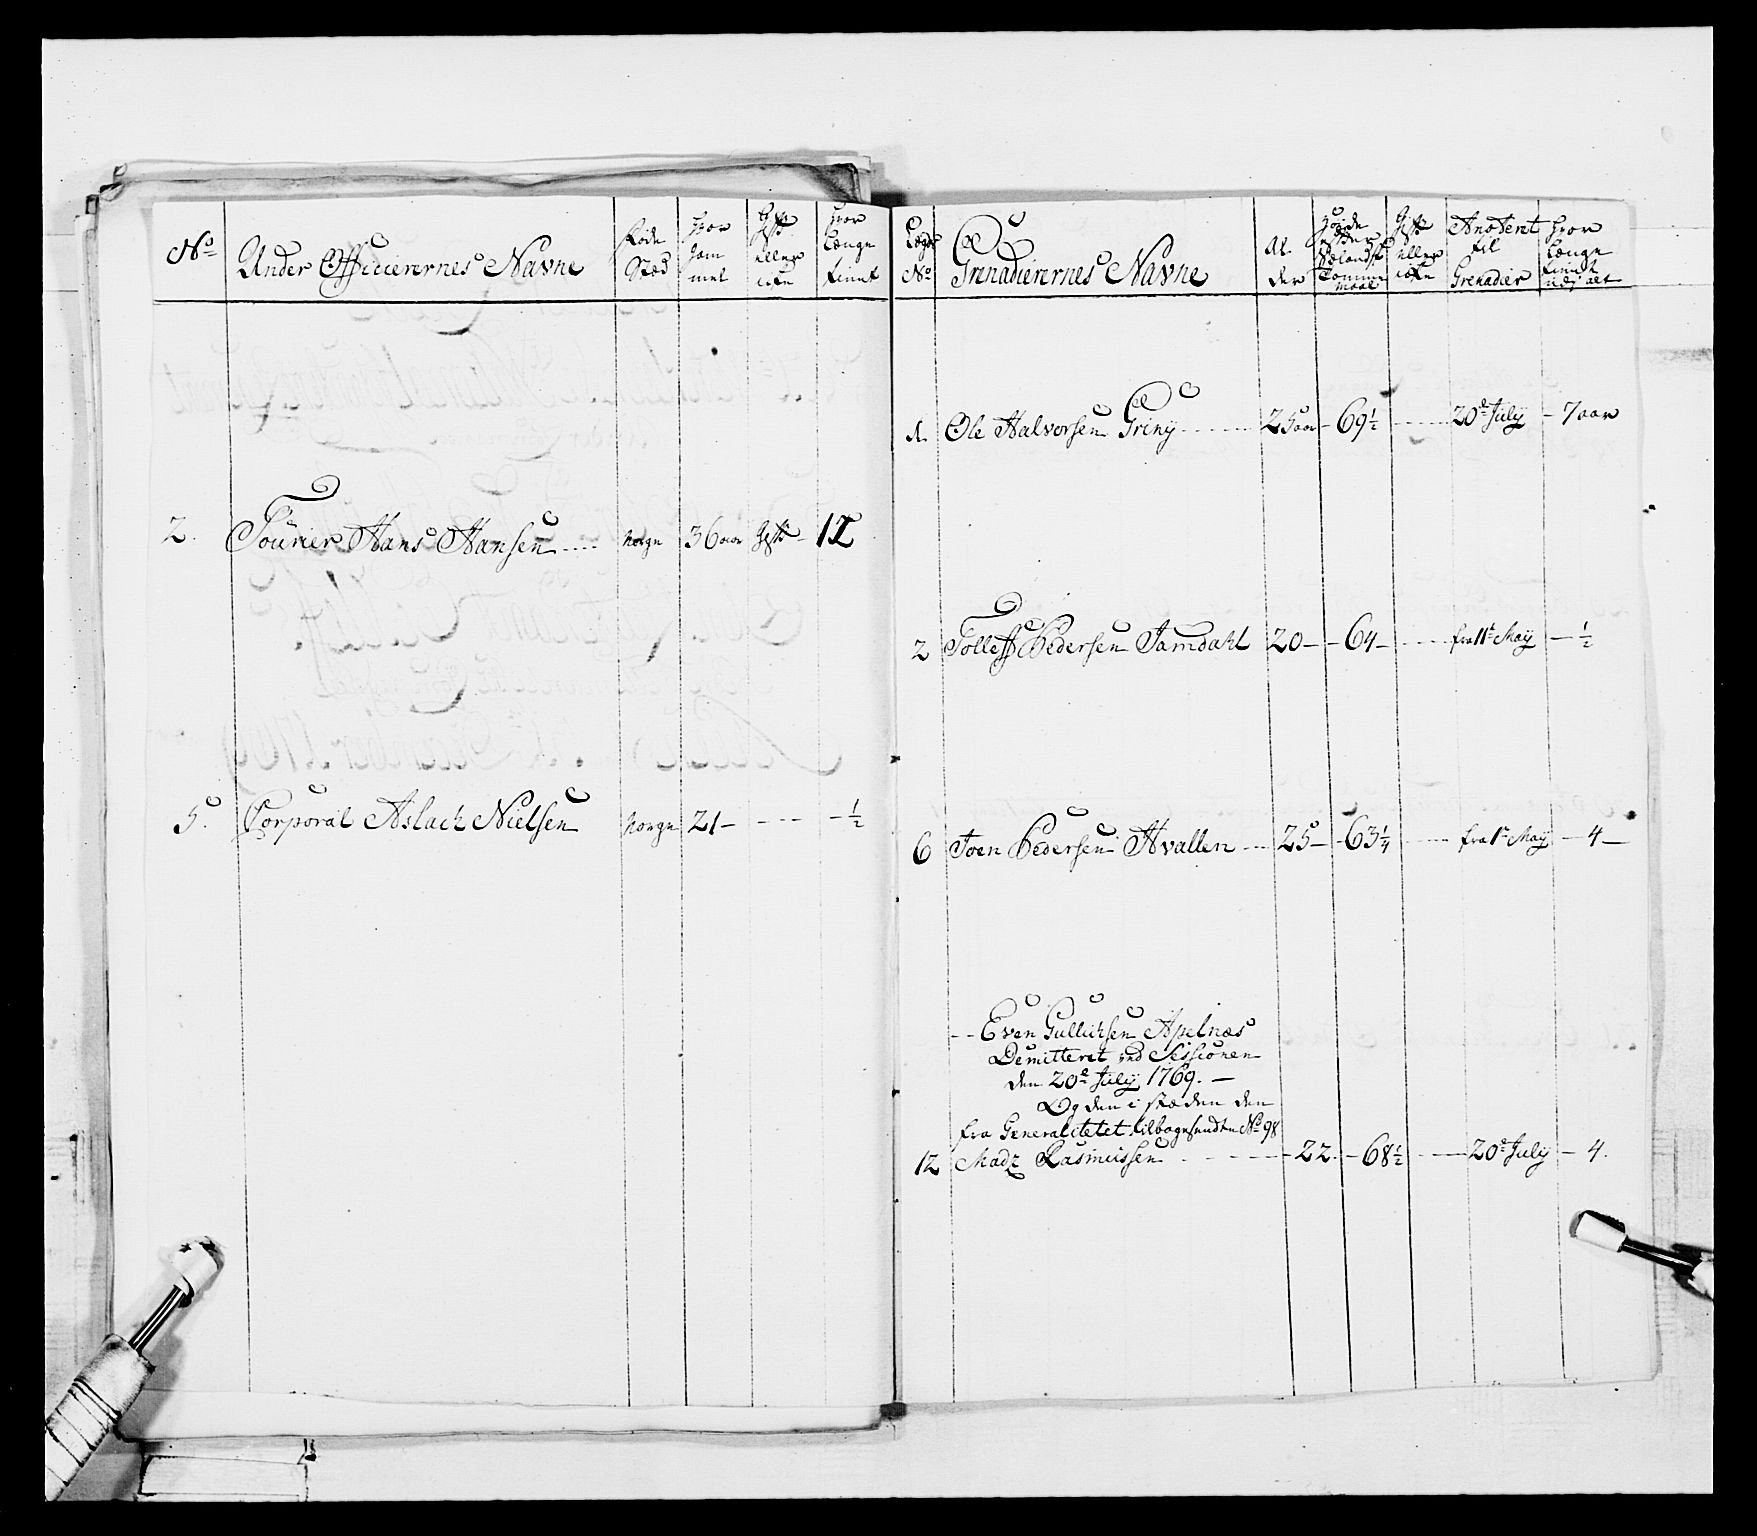 No
Under Officierernes Navne
Føde
Stæd
Hvor
Gam
mel
Gift
eller
icke
Hvor
Længe
tient
2. Fourier Hans Hansen norge 36 aar Gift 12
5. Corporal Aslach Nielsen norge 21 ½
Lægds
No
Grenadierernes Navne
Al
der
Høide
efter
Siælandsk
Tomme
maal
Gift
eller
icke
Anoteret
til
Grenadier
Hvor
Længe
tient
1. Ole Halvorsen Griny 25 aar 69½ 20de July 7 aar
2 Tolleff Pedersen Jamdahl 20 64 fra 11t May ½
6 Joen Pedersen Hvallen 25 63¼ fra 1t May 4
Even Gullichsen Apelnæs
Demitteret ved Sessionen
den 20de July 1769.
Og den i stæden den
fra Generalitetet tilbagesendte No 98
12 Madz Rasmussen 22. 68½ 20de July 4.